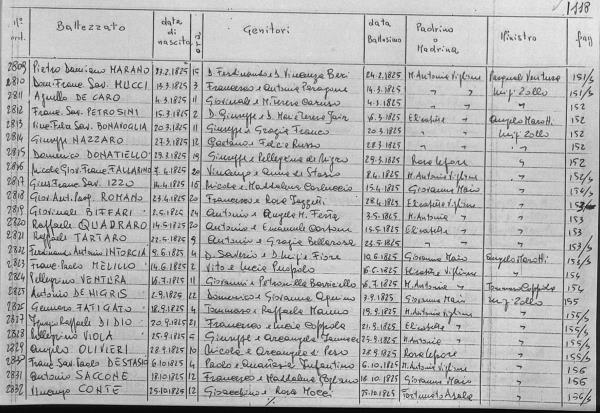 1118
N° ord. Battezzato data di nascita ora Genitori data Battesimo Padrino o Madrina Ministro pag
2809 Pietro Damiano MARANO 23.2.1825 15 D. Ferdinando e D. Vincenza Beri 24.2.1825 M. Antonia Viglione Pasqual Ventura 151/s
2810 Dom. Franc. Sav. MUCCI 14.3.1825 3 Francesco e Antonia Paragone 14.3.1825 " " Luigi Zollo 151/s
2811 Agnello DE CARO 4.3.1825 11 Giovinale e M. Teresa Caruso 4.3.1825 " " " 152
2812 Franc. Sav. PETROSINI 15.3.1825 2 D. Giuseppe e D. Maria Teresa 16.3.1825 Elisabetta " Angelo Marotti 152
2813 BONAVOGLIA 20.3.1825 11 Giuseppe e Grazia Franco 20.3.1825 " " Luigi Zollo 152
2814 Giuseppe NAZZARO 27.3.1825 12 Gaetano e Felice Russo 28.3.1825 " " " 152
2815 Domenico DONATIELLO 29.3.1825 19 Giuseppe e Pellegrina di Nigro 29.3.1825 Rosa Lepore " 152
2816 Nicola Giov. Franc. FALLARINO 7.4.1825 20 Vincenzo e Anna di Stasio 8.4.1825 M. Antonia Viglione " 152/s
2817 Gius. Franc. Sav. IZZO 14.4.1825 16 Nicola e Maddalena Carluccio 15.4.1825 Giovanna Maio " 152/s
2818 Giov. Ant. Pasq. ROMANO 23.4.1825 20 Francesco e Rosa 28.4.1825 Elisabetta Viglione "
2819 Giovinale BIFFARI 2.5.1825 24 Antonio e Angela M. Feña 3.5.1825 M. Antonia " " 153
2820 Raffaele QUADRARO 14.5.1825 20 Antonio e Emanuela Cortone 15.5.1825 Elisabetta " " 153
2821 Raffaele TARTARO 22.5.1825 9 Antonio e Grazia Bellarosa 22.5.1825 " " " 153/s
2822 Ferdinando Antonio INTORCIA 9.6.1825 4 D. Saverio e D. Luigia Fiore 10.6.1825 Giovanna Maio Angelo Marotti 153/s
2823 Franc. Paolo MELILLO 14.6.1825 2 Vito e Lucia Propolo 16.6.1825 Elisabetta Viglione " 154
2824 Pellegrino VENTURA 16.7.1825 11 Giovanni e Petronilla 16.7.1825 M. Antonia " Tommaso Coppola 154
2825 Antonio DE NIGRIS 2.9.1825 12 Domenico e Giovanna 3.9.1825 Giovanna Maio Luigi Zollo 155
2826 Gennaro FATIGATO 18.9.1825 4 Tommaso e Raffaela Mauro 19.9.1825 M. Antonia Viglione " 155/s
2827 Raffaele DI DIO 20.9.1825 21 Francesco e Lucia Coppola 21.9.1825 Elisabetta " " 155/s
2828 Pellegrino VIOLA 25.9.1825 5 Giuseppe e Arcangela 25.9.1825 M. Antonia " " 155/s
2829 Angelo OLIVIERI 28.9.1825 10 Nicola e Arcangela di Peso 28.9.1825 Rosa Lepore " 155/s
2830 Franc. Sav. Paolo DESTASIO 6.10.1825 4 Paolo e Infantino 6.10.1825 M. Antonia Viglione " 156
2831 Antonio SACCONE 18.10.1825 12 Francesco e Maddalena 18.10.1825 Giovanna Maio " 156
2832 Vincenzo CONTE 25.10.1825 12 Gioacchino e Rosa Mocci 25.10.1825 Fortunato " 156/s